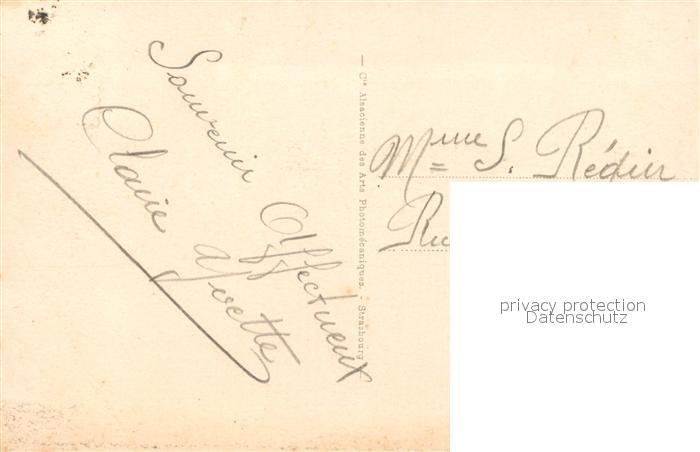 Souvenir Affectueux
Claire Yvette
— Cie Alsacienne des Arts Photomécaniques. - Strasbourg —
Mme S. Rédier
privacy protection
Datenschutz